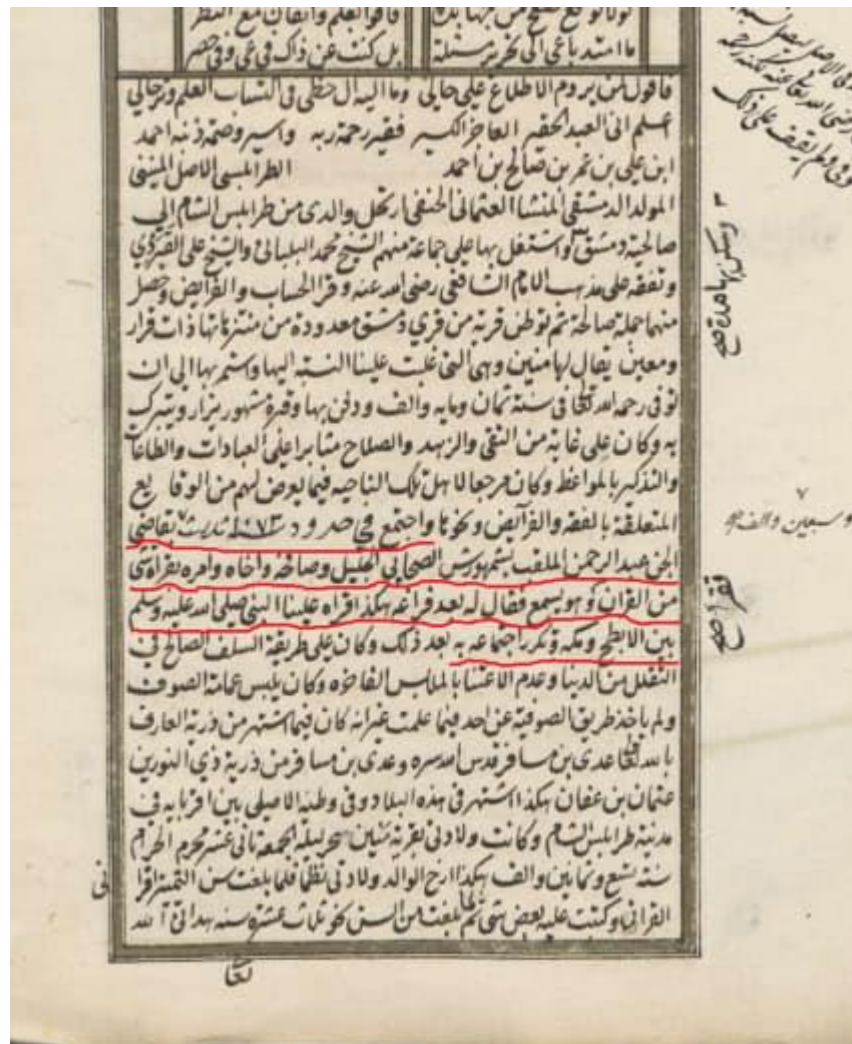 فاقول لمن يروم الاطلاع على حالى وما اليه ال حظى فى اكتساب العلم وترحالى
اعلم انى العبد الحقير العاجز الكسير فقير رحمة ربه واسير وصمة ذنبه احمد
ابن على بن عمر بن صالح بن احمد الطرابلسى الاصل المنينى
المولد الدمشقى المنشا العثمانى الحنفى ارتحل والدى من طرابلس الشام الى
صالحية دمشق واشتغل بها على جماعة منهم الشيخ محمد البلبانى والشيخ على القبردى
وتفقه على مذهب الامام الشافعى رضى الله عنه وقرا الحساب والفرايض وحصل
منهما جملة صالحة ثم توطن قرية من قرى دمشق معدودة من منتزهاتها ذات قرار
ومعين يقال لها منين وهى التى غلبت علينا النسبة اليها واستمر بها الى ان
توفى رحمه الله تعالى فى سنة ثمان ومايه والف ودفن بها وقبره مشهور يزار ويتبرك
به وكان على غاية من التقى والزهد والصلاح مثابرا على العبادات والطاعات
والتذكير بالمواعظ وكان مرجعا لاهل تلك الناحيه فيما يعرض لهم من الوقايع
المتعلقة بالفقه والفرايض ونحوها واجتمع فى حدود ١٠٧٣ ثلاث بقاضى
الجن عبد الرحمن الملقب بشمهورش الصحابى الجليل وصافحه واخاه وامره بقراة شى
من القران وهو يسمع فقال له بعد فراغه هكذا اقراه علينا النبى صلى الله عليه وسلم
بين الابطح ومكه وتكرر اجتماعه به بعد ذلك وكان على طريقة السلف الصالح فى
التقلل من الدنيا وعدم الاعتنا بالملابس الفاخره وكان يلبس عمامة الصوف
ولم ياخذ طريق الصوفية عن احد فيما علمت غير انه كان فيما اشتهر من ذرية العارف
بالله تعالى عدى بن مسافر قدس الله سره وعدى بن مسافر من ذرية ذى النورين
عثمان بن عفان هكذا اشتهر فى هذه البلاد وفى وطنه الاصلى بين اقربايه فى
مدينة طرابلس الشام وكانت ولادتى بقرية منين سحر ليلة الجمعه ثانى عشر محرم الحرام
سنة تسع وثمانين والف هكذا ارخ الوالد ولادتى نظما فلما بلغت سن التمييز اقرا
القران وكتبت عليه بعض شى ثم لما بلغت من السن نحو ثلاث عشرة سنه هدانى الله
تعالى
وسكن بها مدة صح
وسبعين والف